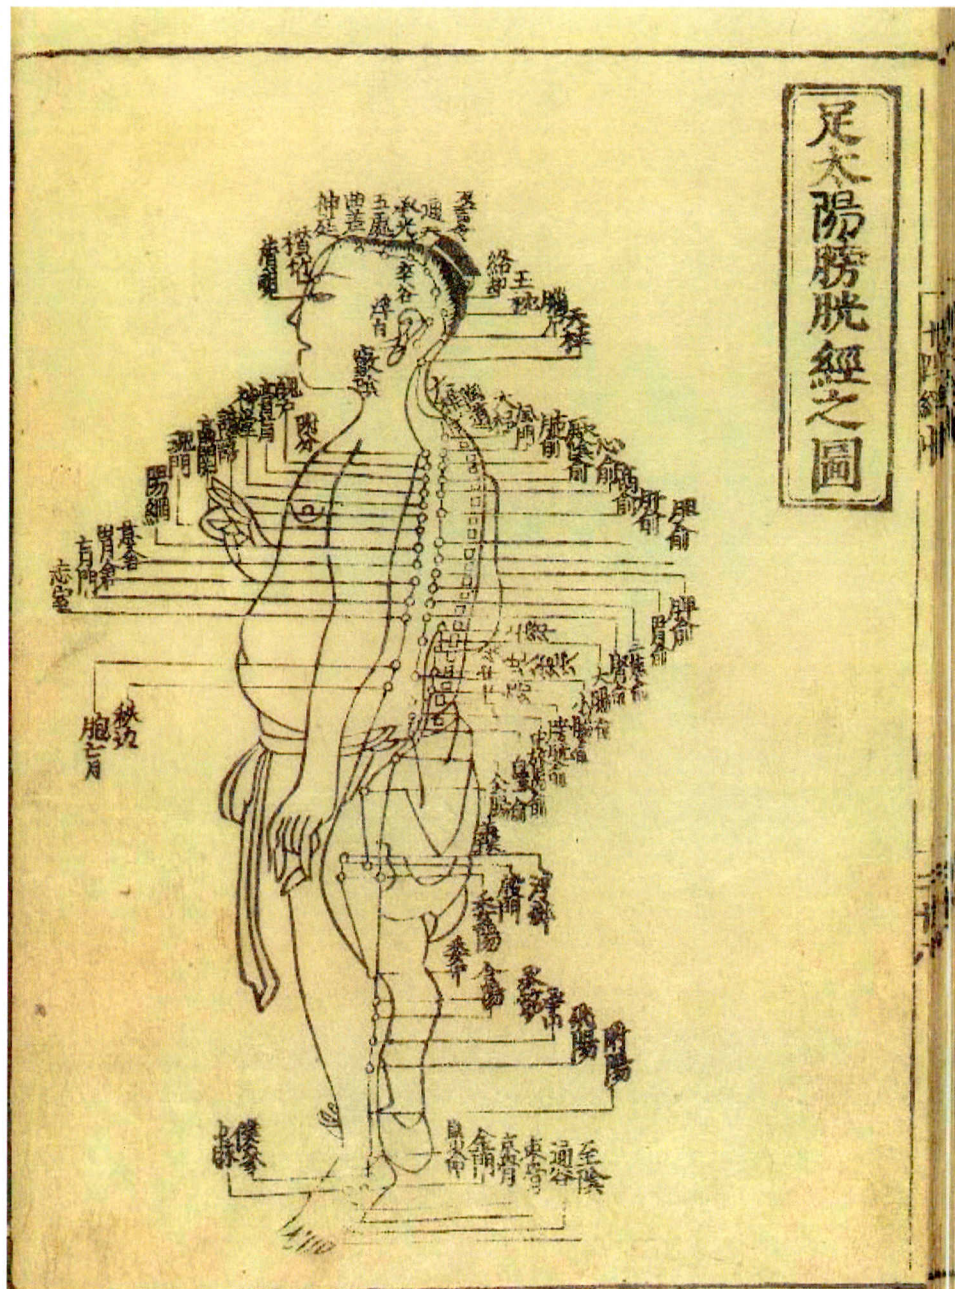 足太陽膀胱經之圖
神庭
曲差
五處
承光
通天
絡却
玉枕
天柱
攅竹
率谷
浮白
竅陰
大杼
風門
肺俞
厥陰俞
心俞
膈俞
肝俞
膽俞
脾俞
胃俞
三焦俞
腎俞
大腸俞
小腸俞
膀胱俞
附分
魄戶
膏肓
神堂
譩譆
膈關
魂門
陽綱
意舍
胃倉
肓門
志室
胞肓
秩邊
會陽
殷門
浮郄
委陽
委中
合陽
承筋
承山
飛陽
附陽
僕參
申脉
金門
京骨
束骨
通谷
至陰